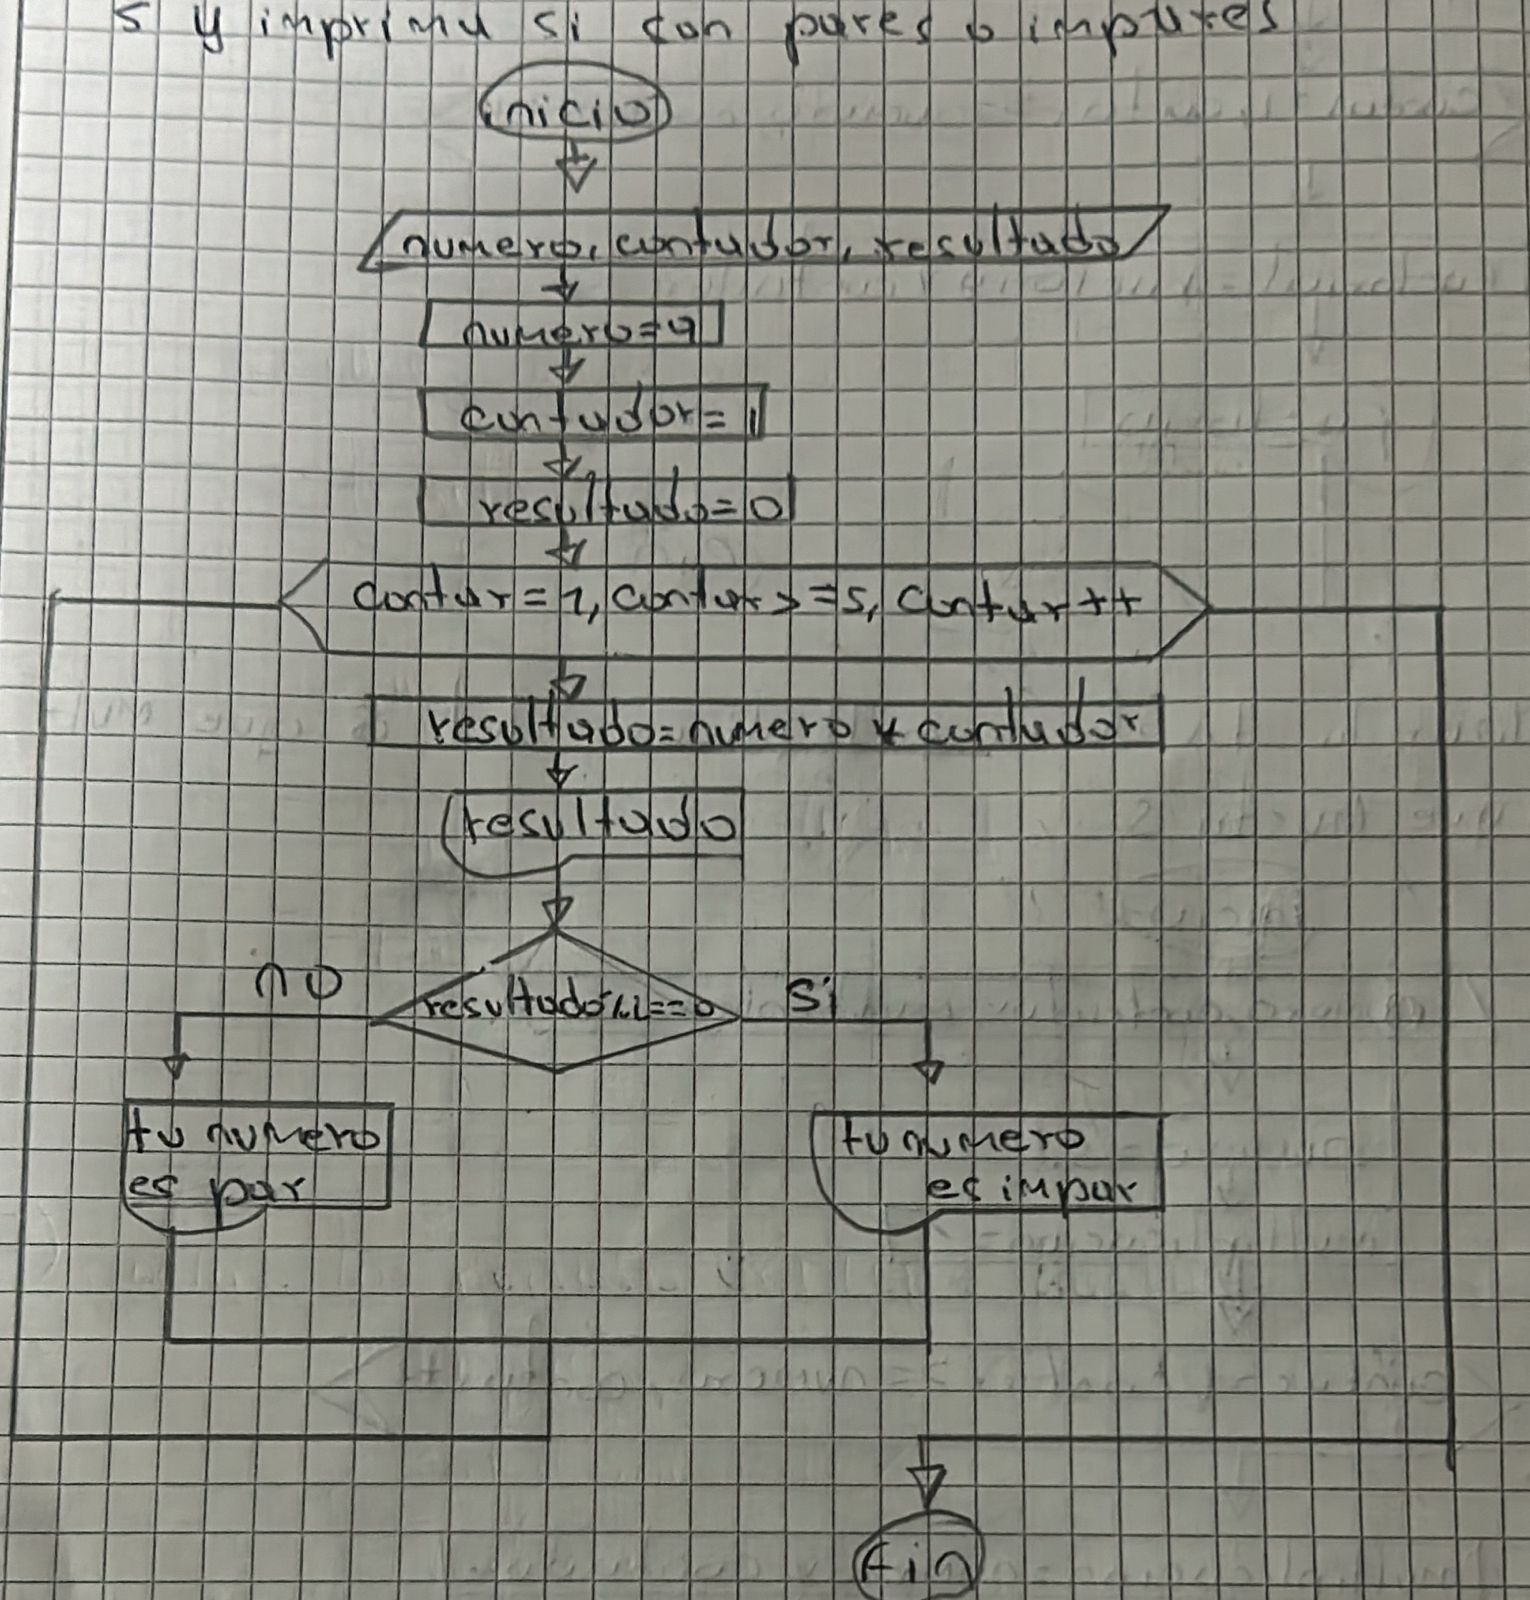 5 y imprima si son pares o impares
inicio
numero, contador, resultado
numero=9
contador=1
resultado=0
contar=1, contar>=5, contar++
resultado=numero * contador
resultado
no
resultado%2==0
si
tu numero
es par
tu numero
es impar
fin